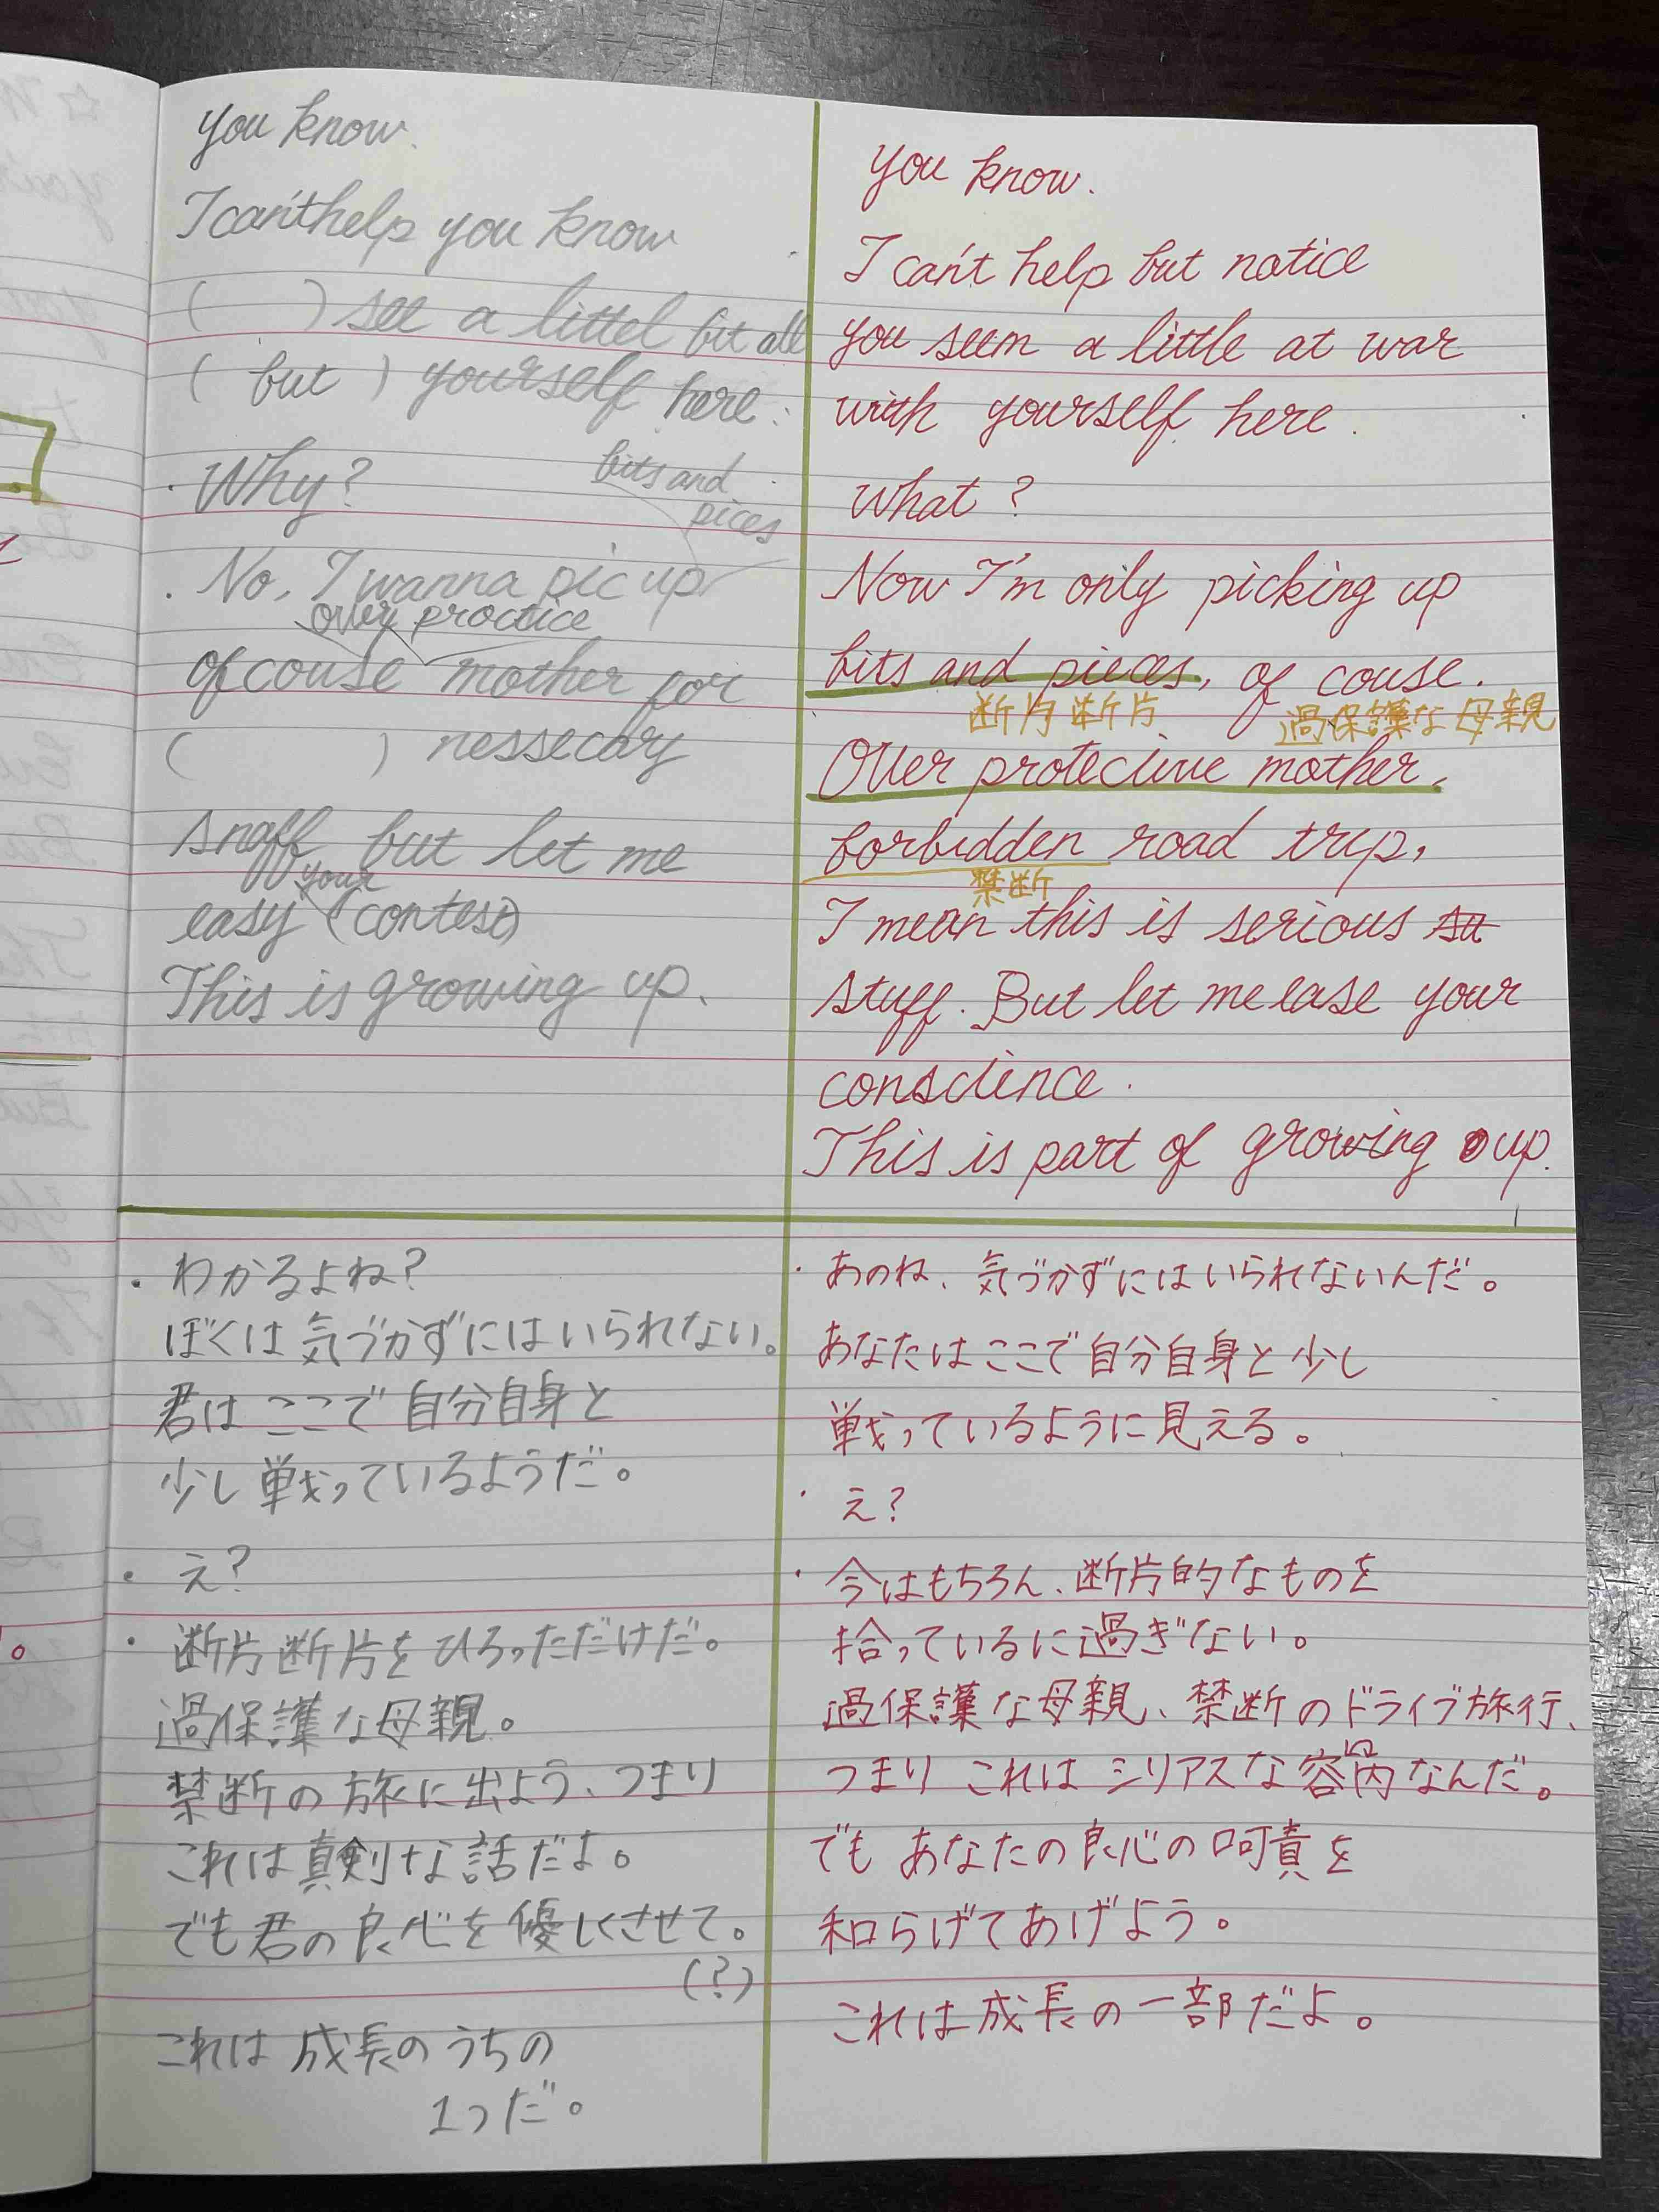 you know.
I can't help you know
(          ) see a littel bit all
( but ) yourself here.
・Why?
bits and
pices
. No, I wanna pic up
over proctice
of couse mother for
(          ) nessecary
but let me
your
easy (contest)
This is growing up.
you know.
I can't help but notice
you seem a little at war
with yourself here.
what?
Now I'm only picking up
bits and pieces, of couse.
断片断片 過保護な母親
Over protective mother.
forbidden road trip,
禁断
I mean this is serious
stuff. But let me ease your
conscience.
This is part of growing up.
・わかるよね?
ぼくは気づかずにはいられない。
君はここで自分自身と
少し戦っているようだ。
・え?
・断片断片をひろっただけだ。
過保護な母親。
禁断の旅に出よう、つまり
これは真剣な話だよ。
でも君の良心を優しくさせて。
(?)
これは成長のうちの
1つだ。
・あのね、気づかずにはいられないんだ。
あなたはここで自分自身と少し
戦っているように見える。
・え?
・今はもちろん、断片的なものを
拾っているに過ぎない。
過保護な母親、禁断のドライブ旅行、
つまりこれはシリアスな容内なんだ。
でもあなたの良心の呵責を
和らげてあげよう。
これは成長の一部だよ。